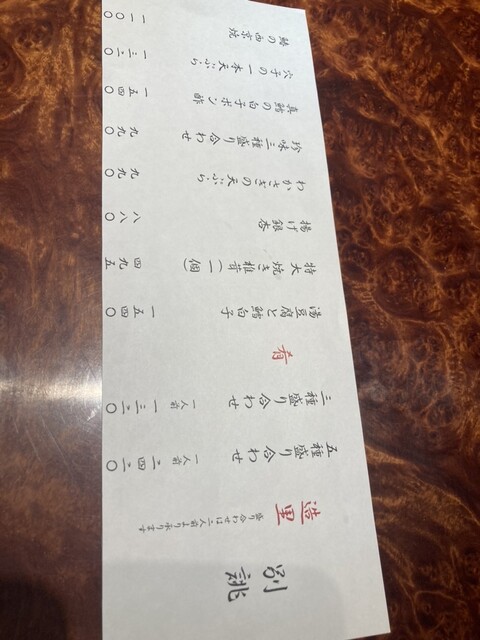 別誂
造里 盛り合わせは二人前より承ります
五種盛り合わせ 一人前 二四二〇
三種盛り合わせ 一人前 一三二〇
肴
湯豆腐と鱈白子 一五四〇
特大焼き椎茸(一個) 四九五
揚げ銀杏 八八〇
わかさぎの天ぷら 九九〇
珍味三種盛り合わせ 九九〇
真鱈の白子ポン酢 一五四〇
穴子の一本天ぷら 一三二〇
鰆の西京焼 一一〇〇